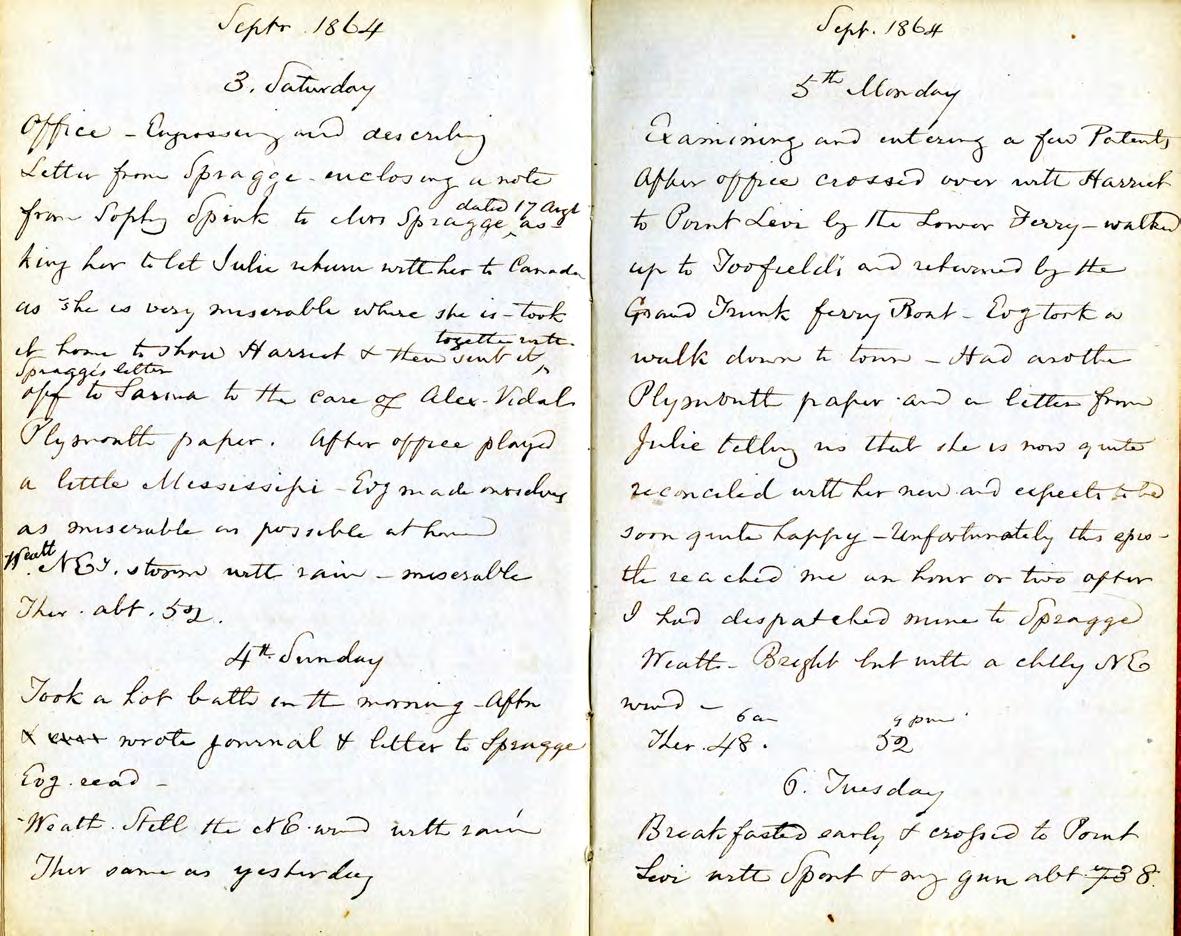 Septr. 1864
3. Saturday
Office - Engrossing and describing
Letter from Spragge - enclosing a note
dated 17 Augt
from Sophy Spink to Mrs Spragge, ^ as=
king her to let Julie return with her to Canada
as she is very miserable where she is - took
together with
it home to show Harriet & then sent it ^
Spragge's letter
off to Sarnia to the care of Alex. Vidal
Plymouth paper. After office played
a little Mississipi - Evg made ourselves
as miserable as possible at home
Weath. NEy. storm with rain - miserable
Ther. abt. 52.
4th Sunday
Took a hot bath in the morning - Aftn
wrote journal & letter to Spragge
Evg. read -
Weath. Still the NE. wind with rain
Ther same as yesterday
Sept. 1864
5th Monday
Examining and entering a few Patents
After office crossed over with Harriet
to Point Levi by the Lower Ferry - walked
up to Toofield's and returned by the
Grand Trunk ferry Boat - Evg took a
walk down to town - Had another
Plymouth paper and a letter from
Julie telling us that she is now quite
reconciled with her new and expects to be
soon quite happy - Unfortunately this epis-
tle reached me an hour or two after
I had dispatched mine to Spragge
Weath - Bright but with a chilly NE
wind -
6 am 9 pm
Ther. 48. 52
6. Tuesday
Breakfasted early & crossed to Point
Levi with Sport & my gun abt 73 8.